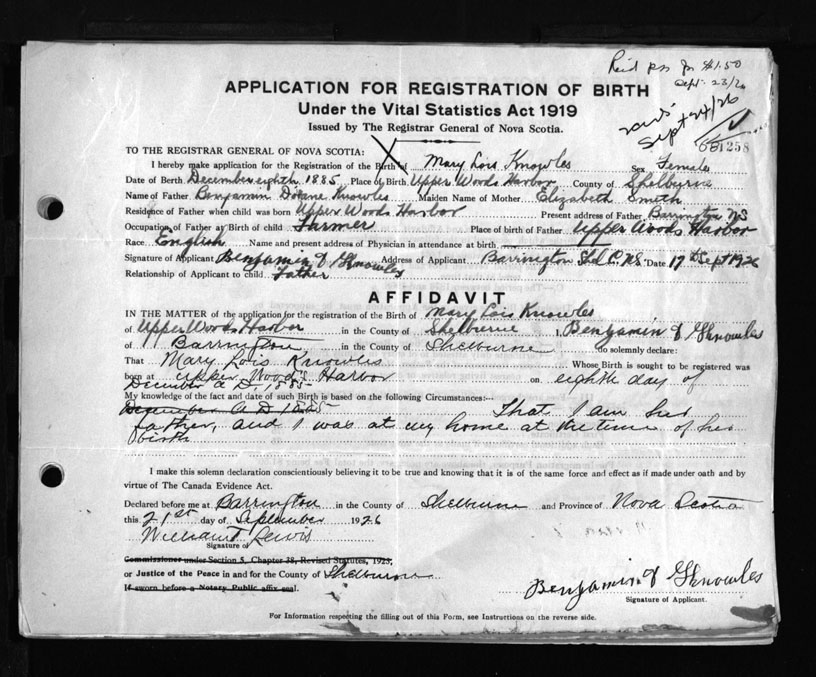 Paid $1.50
Sept. 23/26
Sept 24/26
APPLICATION FOR REGISTRATION OF BIRTH
Under the Vital Statistics Act 1919
Issued by The Registrar General of Nova Scotia.
1258
TO THE REGISTRAR GENERAL OF NOVA SCOTIA:
I hereby make application for the Registration of the Birth of Mary Lois Knowles Sex Female
Date of Birth December eighth 1885 Place of Birth Upper Woods Harbor County of Shelburne
Name of Father Benjamin Doane Knowles Maiden Name of Mother Elizabeth Smith
Residence of Father when child was born Upper Woods Harbor Present address of Father Barrington NS
Occupation of Father at Birth of child Farmer Place of birth of Father Upper Woods Harbor
Race English Name and present address of Physician in attendance at birth
Signature of Applicant Benjamin D Knowles Address of Applicant Barrington Shel Co, N.S. Date 17th Sept 1926
Relationship of Applicant to child Father
AFFIDAVIT
IN THE MATTER of the application for the registration of the Birth of Mary Lois Knowles
of Upper Woods Harbor in the County of Shelburne I, Benjamin D Knowles
of Barrington in the County of Shelburne do solemnly declare:
That Mary Lois Knowles Whose Birth is sought to be registered was
born at Upper Wood's Harbor on eighth day of
December A D, 1885
My knowledge of the fact and date of such Birth is based on the following Circumstances:--
December A D 1885 That I am her
father, and I was at my home at the time of her
birth
I make this solemn declaration conscientiously believing it to be true and knowing that it is of the same force and effect as if made under oath and by
virtue of The Canada Evidence Act.
Declared before me at Barrington in the County of Shelburne and Province of Nova Scotia
this 21st day of September 1926
William T Lewis
Signature of
Commissioner under Section 5, Chapter 38, Revised Statutes, 1923,
or Justice of the Peace in and for the County of Shelburne
If sworn before a Notary Public affix seal.
Benjamin D Knowles
Signature of Applicant.
For Information respecting the filling out of this Form, see Instructions on the reverse side.